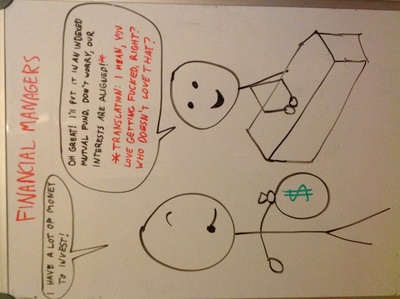 FINANCIAL MANAGERS
I HAVE A LOT OF MONEY
TO INVEST!
OH GREAT! I'LL PUT IT IN AN INDEXED
MUTUAL FUND. DON'T WORRY, OUR
INTERESTS ARE ALIGNED!*
* TRANSLATION: I MEAN, YOU
LOVE GETTING FUCKED, RIGHT?
WHO DOESN'T LOVE THAT?
$